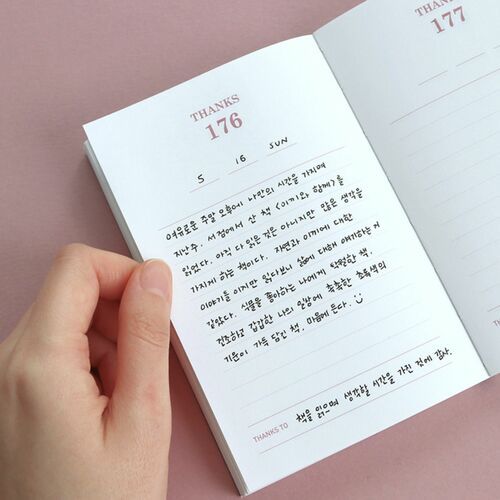 THANKS
176
5 16 SUN
여유로운 주말 오후에 나만의 시간을 가지며
지난주, 서점에서 산 책 <이끼와 함께>를
읽었다. 아직 다 읽은 것은 아니지만 많은 생각을
가지게 하는 책이다. 자연과 이끼에 대한
이야기들이지만 읽다보니 삶에 대해 얘기하는 거
같았다. 식물을 좋아하는 나에게 완벽한 책.
건조하고 갑갑한 나의 일상에 촉촉한 초록색의
기운이 가득 담긴 책. 마음에 든다.
THANKS TO 책을 읽으며 생각할 시간을 가진 것에 감사.
THANKS
177
THANKS